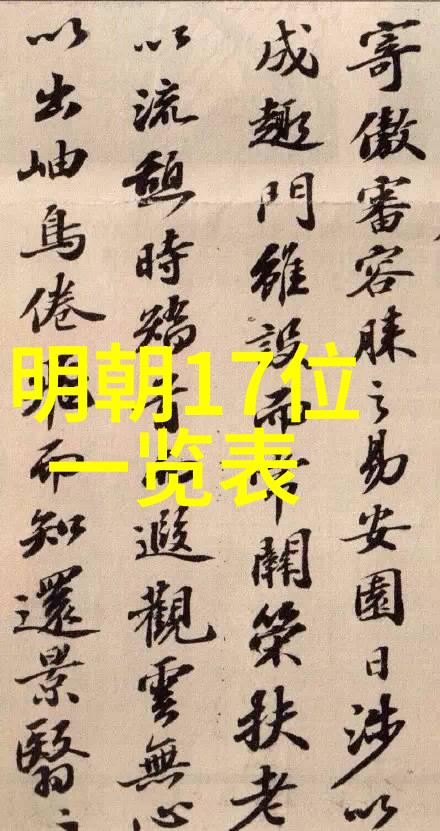 明朝17位
一览表
寄傲審容膝之易安園日涉以
成趣門雖設而常關策扶老
以流憩時矯首遐觀雲無心
以出岫鳥倦而知還景翳